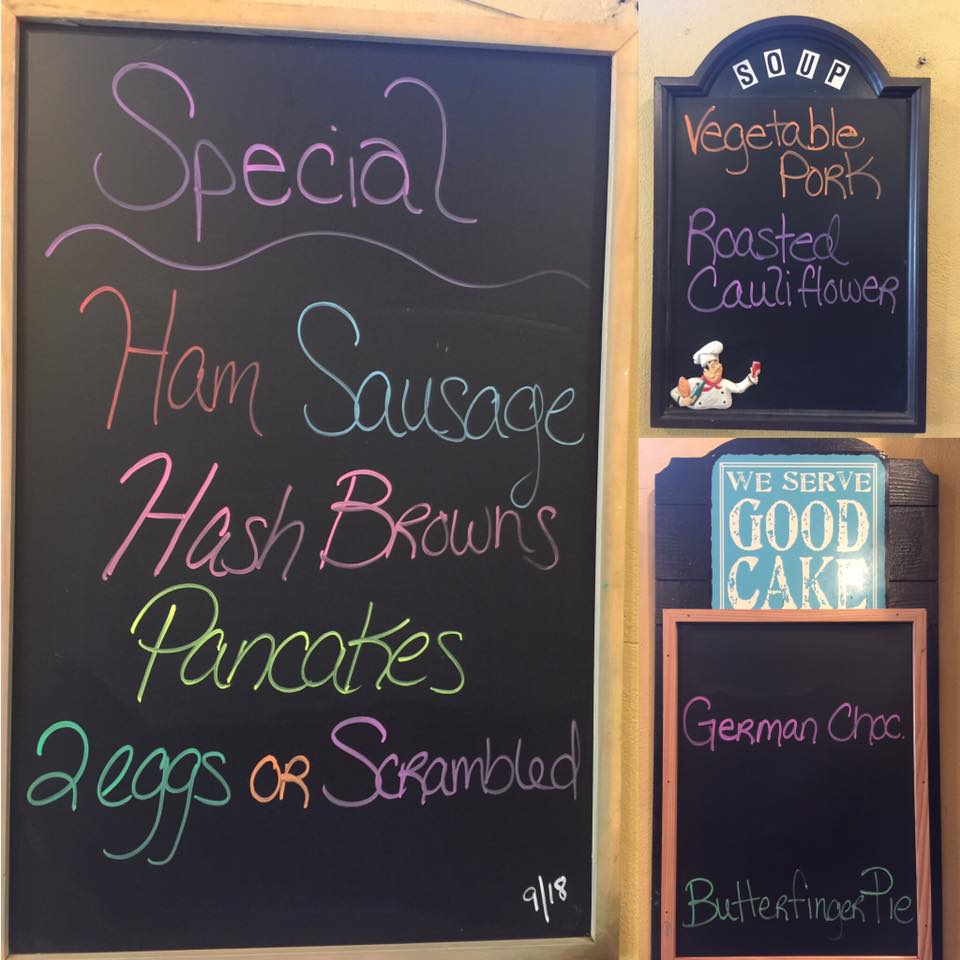 Special
Ham Sausage
Hash Browns
Pancakes
2 eggs or Scrambled
9/18
SOUP
Vegetable
Pork
Roasted
Cauliflower
WE SERVE
GOOD
CAKE
German Choc.
Butterfinger Pie